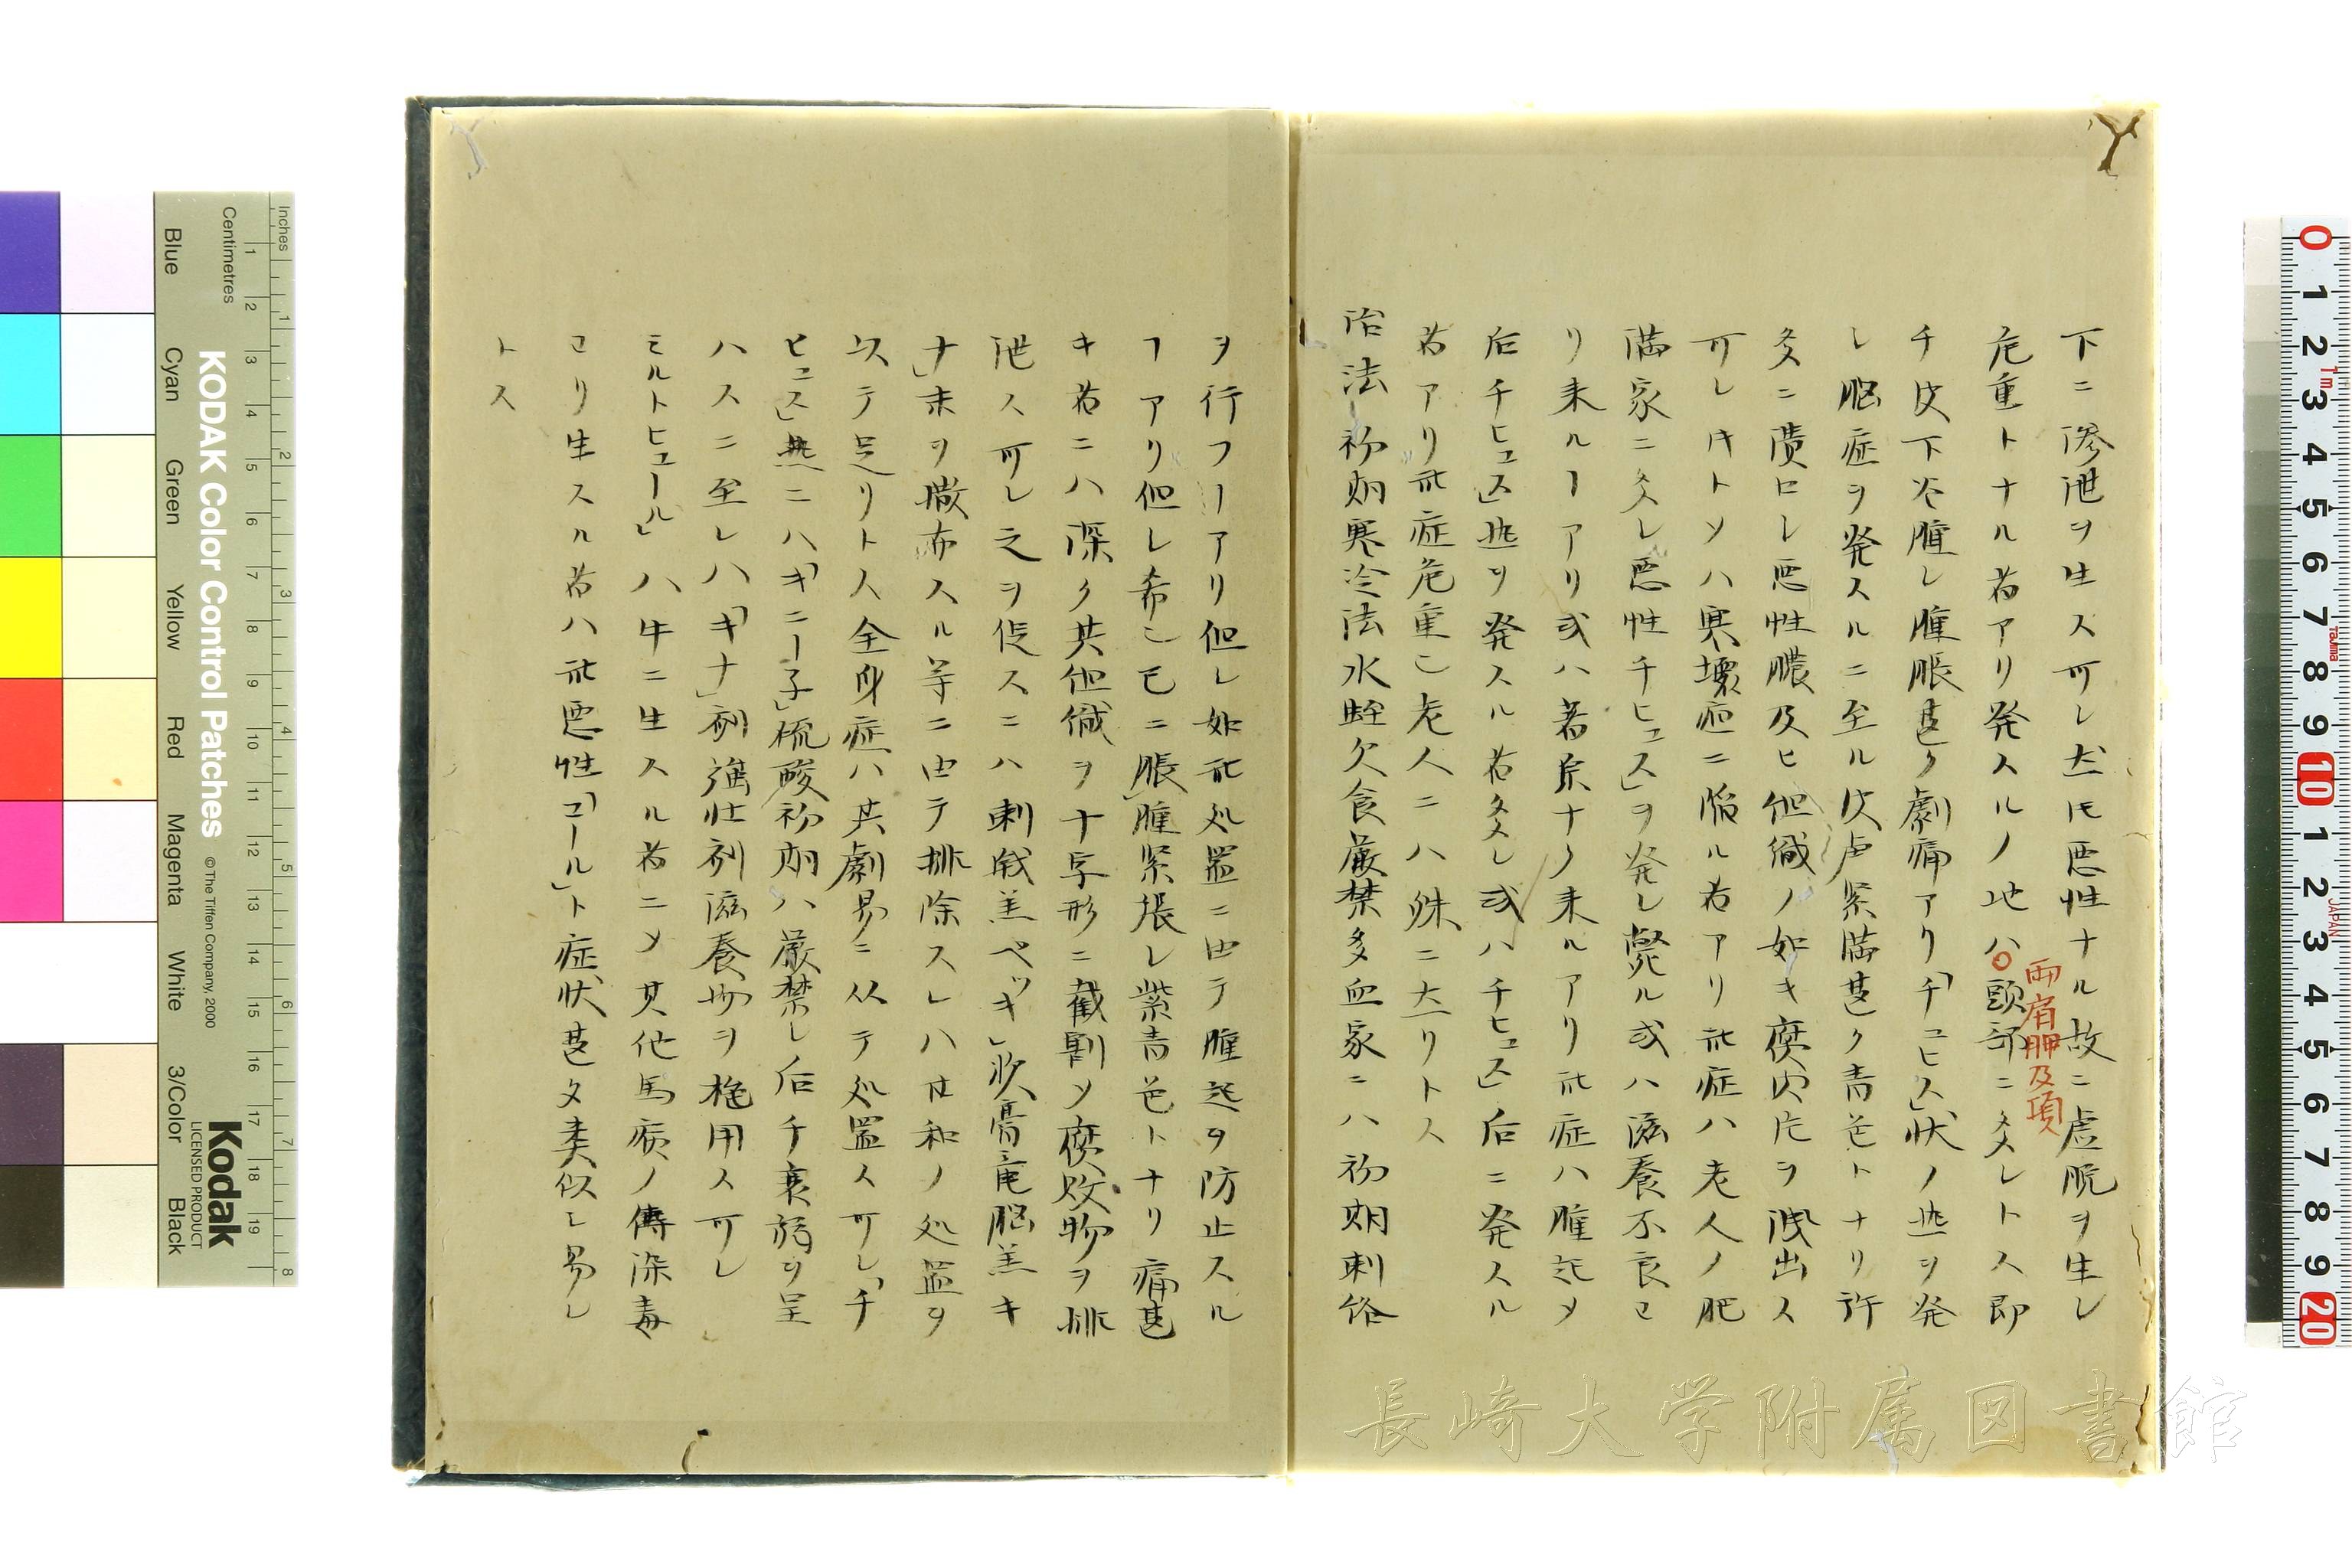 下ニ滲泄ヲ生ス可レ尤モ悪性ナル故ニ虚脱ヲ生シ
危重トナル者アリ発スルノ地ハ〇頭部ニ多シトス即
両肩胛及項
チ皮下ニ腫レ腫脹甚ク劇痛アリ「チュヒス」状ノ熱ヲ発
シ脳症ヲ発スルニ至ル皮膚緊満甚ク青色トナリ許
多ニ潰口シ悪性膿及ヒ組織ノ如キ腐肉片ヲ洩出ス
可シ トソハ寒壊疽ニ陥ル者アリ此症ハ老人ノ肥
満家ニ多シ悪性「チヒュス」ヲ発シ斃ル或ハ滋養不良ヨ
リ来ルヿアリ或ハ著原ナク来ルアリ此症ハ腫起メ
后「チヒュス」熱ヲ発スル者多シ或ハ「チヒュス」后ニ発スル
者アリ此症危重ニ老人ニハ殊ニ大リトス
治法 初期寒冷法水蛭欠食厳禁多血家ニハ初期刺絡
ヲ行フヿアリ但シ如此処置ニ由テ腫起ヲ防止スル
ヿアリ但シ希ニ已ニ脹腫緊張シ紫青色トナリ痛甚
キ者ニハ深ク其組織ヲ十字形ニ截割メ腐敗物ヲ排
泄ス可シ之ヲ促スニハ刺戟羔「ペッキ」次膏竜脳羔キ
ナ」末ヲ撒布スル等ニ由テ排除スレハ 和ノ処置ヲ
以テ足リトス全身症ハ其劇易ニ从テ処置ス可シ「チ
ヒュス」熱ニハ「キニー子」硫酸初期ハ厳禁シ后チ衰弱ヲ呈
ハスニ至レハ「キナ」剤強壮剤滋養物ヲ施用ス可シ
ミルトヒュール」ハ牛ニ生スル者ニメ其他馬病ノ傳染毒
ヨリ生スル者ハ此悪性「コール」ト症状甚タ類似シ易シ
トス
Inches
Centimetres
KODAK Color Control Patches
© The Tiffen Company, 2000
Kodak
LICENSED PRODUCT
Blue
Cyan
Green
Yellow
Red
Magenta
White
3/Color
Black
長崎大学附属図書館